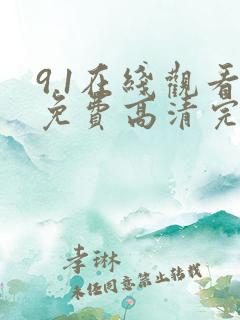 9.1在綫觀看
免費高清完
李琳
未经同意禁止转载